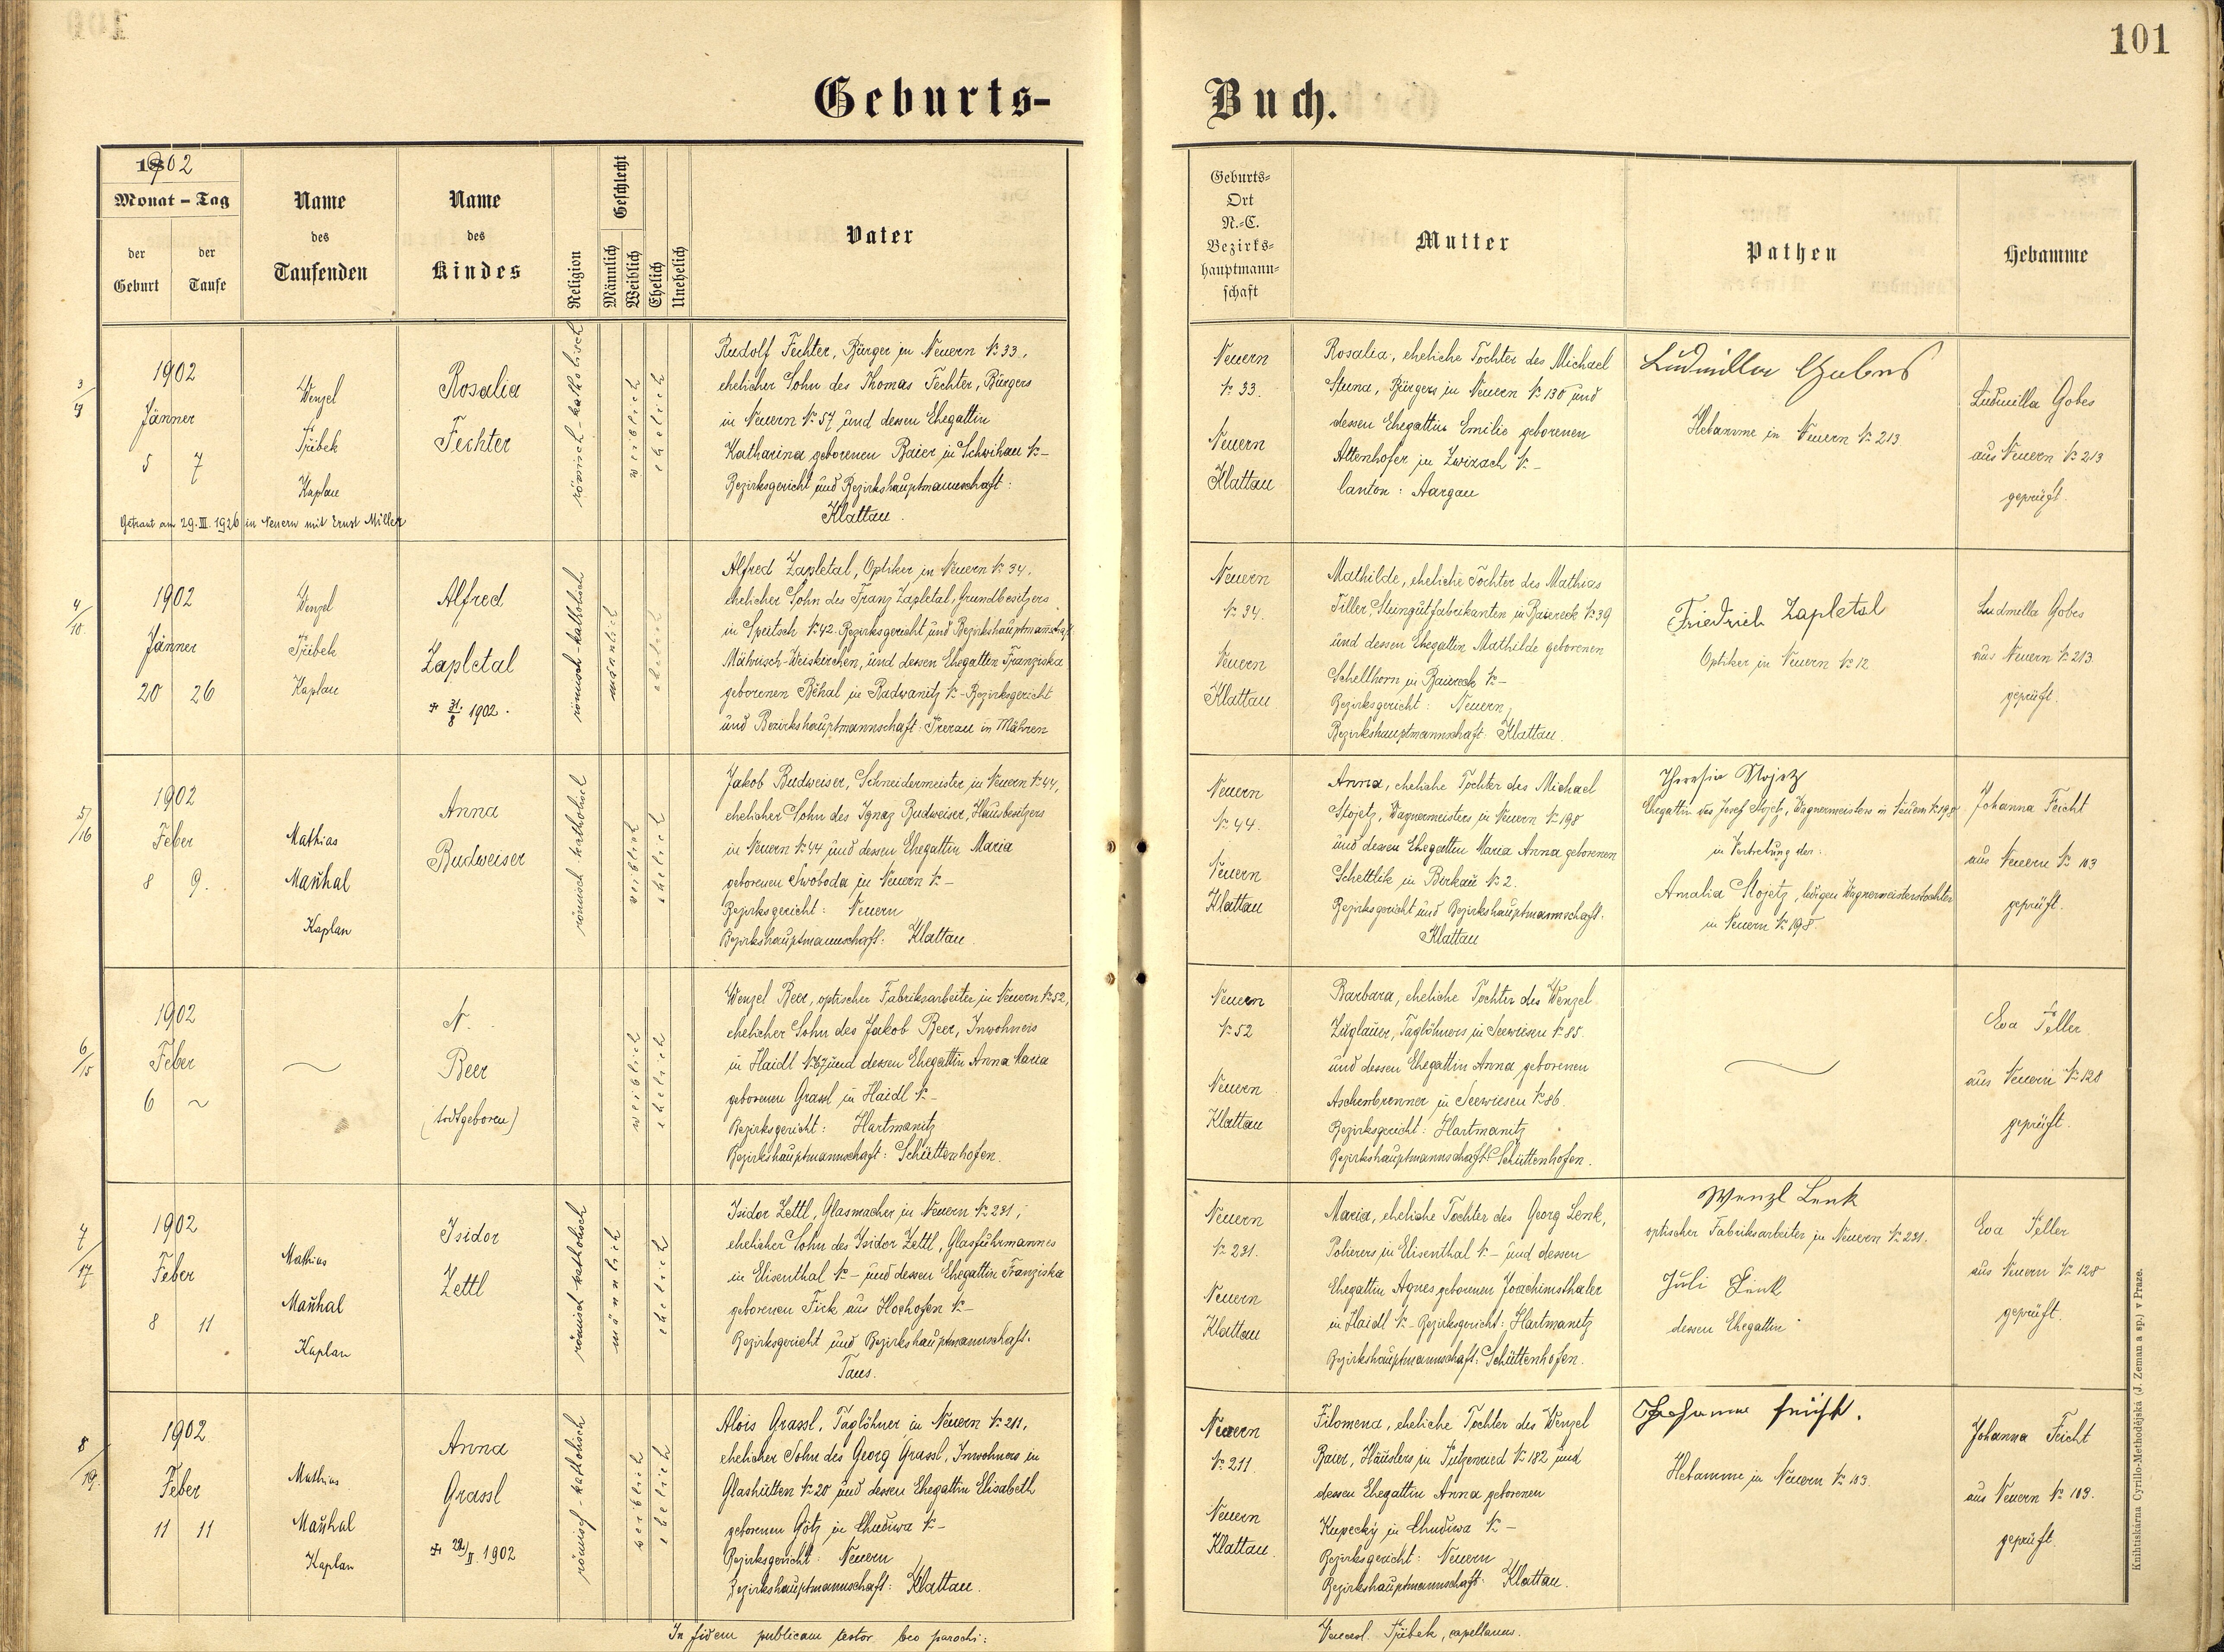 101
Geburts-
Buch.
1902
Monat - Tag
der Geburt
der Taufe
Name des Taufenden
Name des Kindes
Religion
Geschlecht
Männlich
Weiblich
Ehelich
Unehelich
Vater
Geburts-
Ort
N.-C.
Bezirks-
hauptmann-
schaft
Mutter
Pathen
Hebamme
3/3
1902
Jänner
5 7
Wenzel
Přibek
Kaplan
Rosalia
Fechter
römisch-katholisch
weiblich
ehelich
Rudolf Fechter, Bürger in Neuern № 33,
ehelicher Sohn des Thomas Fechter, Bürgers
in Neuern № 57 und dessen Ehegattin
Katharina geborenen Baier in Schwihau № -
Bezirksgericht und Bezirkshauptmannschaft:
Klattau.
Getraut am 29. III. 1926 in Neuern mit Ernst Müller
Neuern
№ 33.
Neuern
Klattau
Rosalia, eheliche Tochter des Michael
Bürgers in Neuern № 130 und
dessen Ehegattin Emilie geborenen
Attenhofer in Zurzach № -
Canton: Aargau
Ludmilla Gobes
Hebamme in Neuern № 213
Ludmilla Gobes
aus Neuern № 213
geprüft.
4/10.
1902
Jänner
20 26
Wenzel
Přibek
Kaplan
Alfred
Zapletal
+ 31./8 1902.
römisch-katholisch
männlich
ehelich
Alfred Zapletal, Optiker in Neuern № 34,
ehelicher Sohn des Franz Zapletal, Grundbesitzers
in Speitsch № 42. Bezirksgericht und Bezirkshauptmannschaft
Mährisch-Weiskirchen, und dessen Ehegattin Franziska
geborenen Běhal in Radwanitz № - Bezirksgericht
und Bezirkshauptmannschaft: Prerau in Mähren
Neuern
№ 34.
Neuern
Klattau
Mathilde, eheliche Tochter des Mathias
Tiller, Steingutfabrikanten in Baiereck № 39
und dessen Ehegattin Mathilde geborenen
Schellhorn in Baiereck № -
Bezirksgericht: Neuern,
Bezirkshauptmannschaft: Klattau.
Friedrich Zapletal
Optiker in Neuern № 12
Ludmilla Gobes
aus Neuern № 213
geprüft.
5/16
1902
Feber
8 9.
Mathias
Maňhal
Kaplan
Anna
Budweiser
römisch katholisch
weiblich
ehelich
Jakob Budweiser, Schneidermeister in Neuern № 44,
ehelicher Sohn des Ignaz Budweiser, Hausbesitzers
in Neuern № 44 und dessen Ehegattin Maria
geborenen Swoboda in Neuern № -
Bezirksgericht: Neuern
Bezirkshauptmannschaft: Klattau
Neuern
№ 44.
Neuern
Klattau
Anna, eheliche Tochter des Michael
Stojetz, Wagnermeisters in Neuern № 198
und dessen Ehegattin Maria Anna geborenen
Schettlik in Birkau № 2.
Bezirksgericht und Bezirkshauptmannschaft.
Klattau
Theresia Stojetz
Ehegattin des Josef Stojetz, Wagnermeisters in Neuern № 198
in Vertretung der:
Amalia Stojetz, ledigen Wagnermeisterstochter
in Neuern № 198.
Johanna Feicht
aus Neuern № 103
geprüft.
6/15
1902
Feber
6 ~
N.
Beer
(todtgeboren)
weiblich
ehelich
Wenzel Beer, optischer Fabriksarbeiter in Neuern № 52,
ehelicher Sohn des Jakob Beer, Inwohners
in Haidl № 67 und dessen Ehegattin Anna Maria
geborenen Grassl in Haidl № -
Bezirksgericht: Hartmanitz
Bezirkshauptmannschaft: Schüttenhofen.
Neuern
№ 52
Neuern
Klattau
Barbara, eheliche Tochter des Wenzel
Zuglauer, Taglöhners in Seewiesen № 85.
und dessen Ehegattin Anna geborenen
Aschenbrenner in Seewiesen № 86.
Bezirksgericht: Hartmanitz
Bezirkshauptmannschaft: Schüttenhofen.
Eva Peller
aus Neuern № 128
geprüft.
7/17
1902
Feber
8 11
Mathias
Maňhal
Kaplan
Isidor
Zettl
römisch katholisch
männlich
ehelich
Isidor Zettl, Glasmacher in Neuern № 231,
ehelicher Sohn des Isidor Zettl, Glasfuhrmannes
in Elisenthal № - und dessen Ehegattin Franziska
geborenen Fick aus Hochofen № -
Bezirksgericht und Bezirkshauptmannschaft.
Taus.
Neuern
№ 231.
Neuern
Klattau
Maria, eheliche Tochter des Georg Lenk,
Polierers in Elisenthal № - und dessen
Ehegattin Agnes geborenen Joachimsthaler
in Haidl № - Bezirksgericht: Hartmanitz
Bezirkshauptmannschaft: Schüttenhofen.
Wenzl Lenk
optischer Fabriksarbeiter in Neuern № 231.
Juli Link
dessen Ehegattin
Eva Peller
aus Neuern № 128
geprüft.
8/19.
1902
Feber
11 11
Mathias
Maňhal
Kaplan
Anna
Grassl
+ 22/II. 1902
römisch-katholisch
weiblich
ehelich
Alois Grassl, Taglöhner in Neuern № 211,
ehelicher Sohn des Georg Grassl, Inwohners in
Glashütten № 20 und dessen Ehegattin Elisabeth
geborenen Götz in Chudiwa № -
Bezirksgericht: Neuern
Bezirkshauptmannschaft: Klattau.
Neuern
№ 211
Neuern
Klattau.
Filomena, eheliche Tochter des Wenzel
Baier, Häuslers in Putzenried № 182 und
dessen Ehegattin Anna geborenen
Kupecky in Chudiwa № -
Bezirksgericht: Neuern
Bezirkshauptmannschaft: Klattau.
Johanna Feicht.
Hebamme in Neuern № 103.
Johanna Feicht
aus Neuern № 103.
geprüft.
In fidem publicam testor loco parochi:
Vencesl. Přibek, capellanus.
Knihtiskárna Cyrillo-Methodějská (J. Zeman a sp.) v Praze.